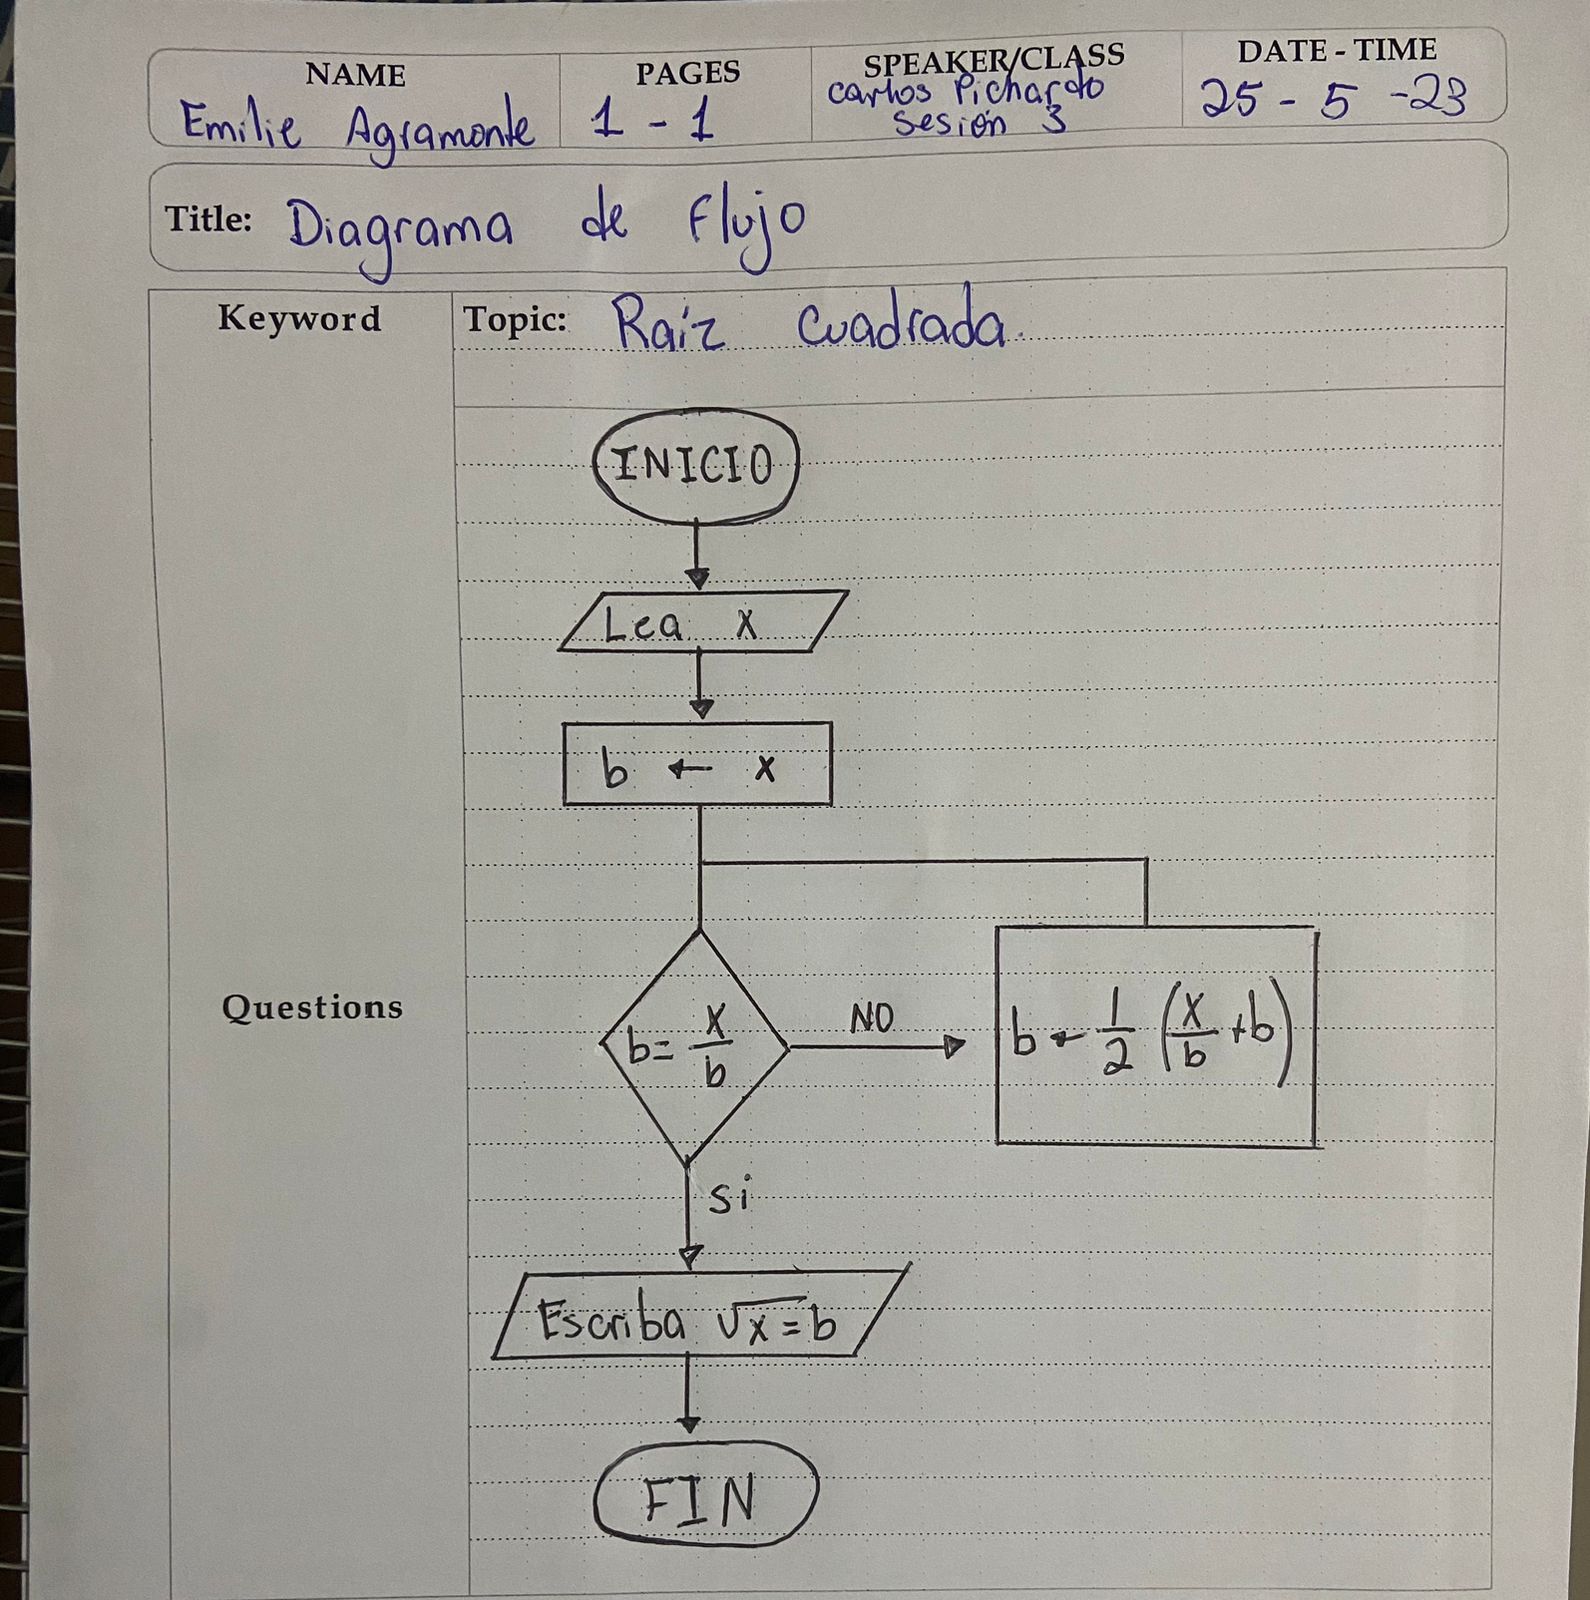 NAME PAGES SPEAKER/CLASS DATE - TIME
Emilie Agramonte 1 - 1 Carlos Pichardo 25 - 5 - 23
Sesión 3
Title: Diagrama de Flujo
Keyword Topic: Raíz Cuadrada.
INICIO
Lea x
b ← x
Questions
b = x/b
NO
b ← 1/2 (x/b + b)
Si
Escriba √x = b
FIN